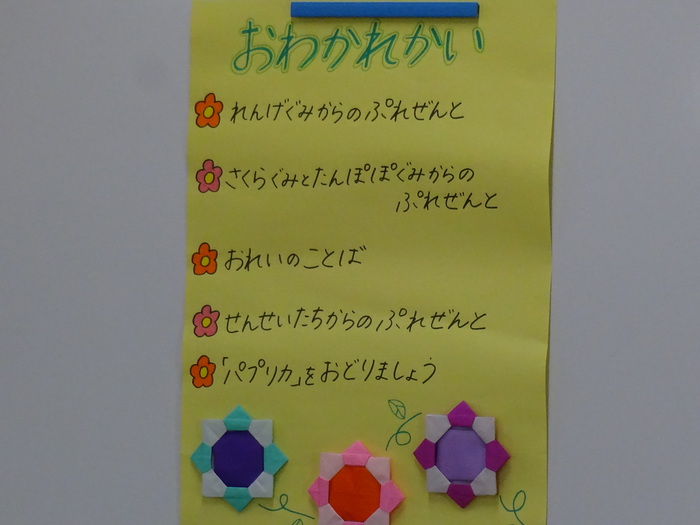 おわかれかい
れんげぐみからのぷれぜんと
さくらぐみとたんぽぽぐみからの
ぷれぜんと
おれいのことば
せんせいたちからのぷれぜんと
「パプリカ」をおどりましょう